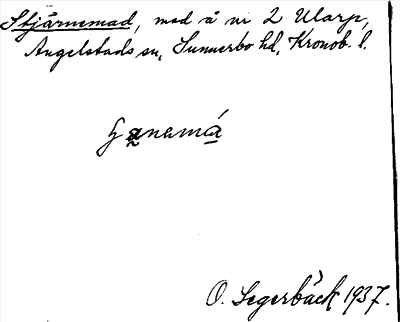 Stjärnemad, mad å nr 2 Ularp,
Angelstads sn, Sunnerbo hd, Kronob. l.
O. Segerbäck 1937.